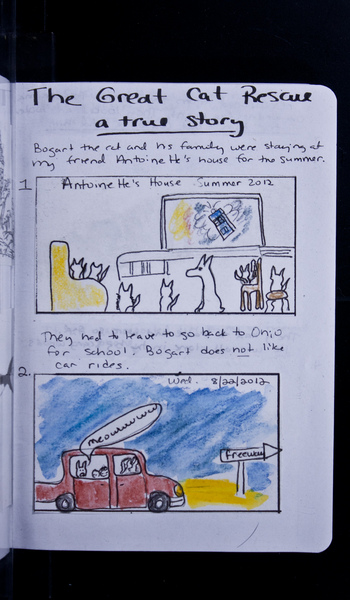 The Great Cat Rescue
a true story
Bogart the cat and his family were staying at
my friend Antoinette's house for the summer.
1.
Antoinette's House Summer 2012
They had to leave to go back to Ohio
for school. Bogart does not like
car rides.
2.
Wed. 8/22/2012
meowwwww
Freeway